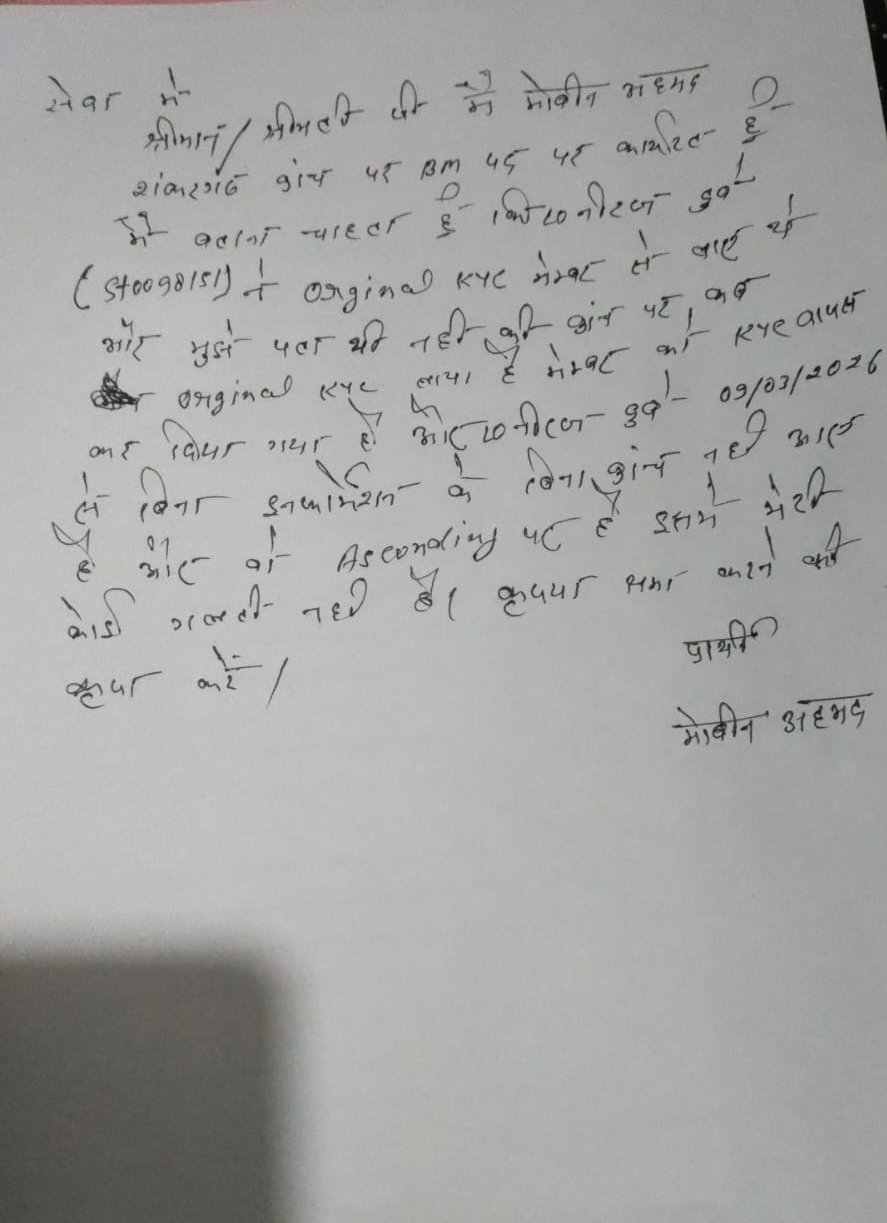 सेवा में
श्रीमान/श्रीमती जी मैं मोबीन अहमद
शंकरगढ ब्रांच पर BM पद पर कार्यरत हूँ
मैं बताना चाहता हूँ कि नीरज दुबे
(St0098151) ने Orginal KYC मेम्बर से लाए थे
और मुझे पता भी नही की ब्रांच पर, कब
Orginal KYC लाया है मेम्बर को KYC वापस
कर दिया गया है और नीरज दुबे 09/03/2026
से बिना इनफार्मेशन के बिना ब्रांच नही आए
है और वो Asconding पर है इसमे मेरी
कोई गलती नही है। कृपया क्षमा करने की
कृपा करे।
प्रार्थी
मोबीन अहमद